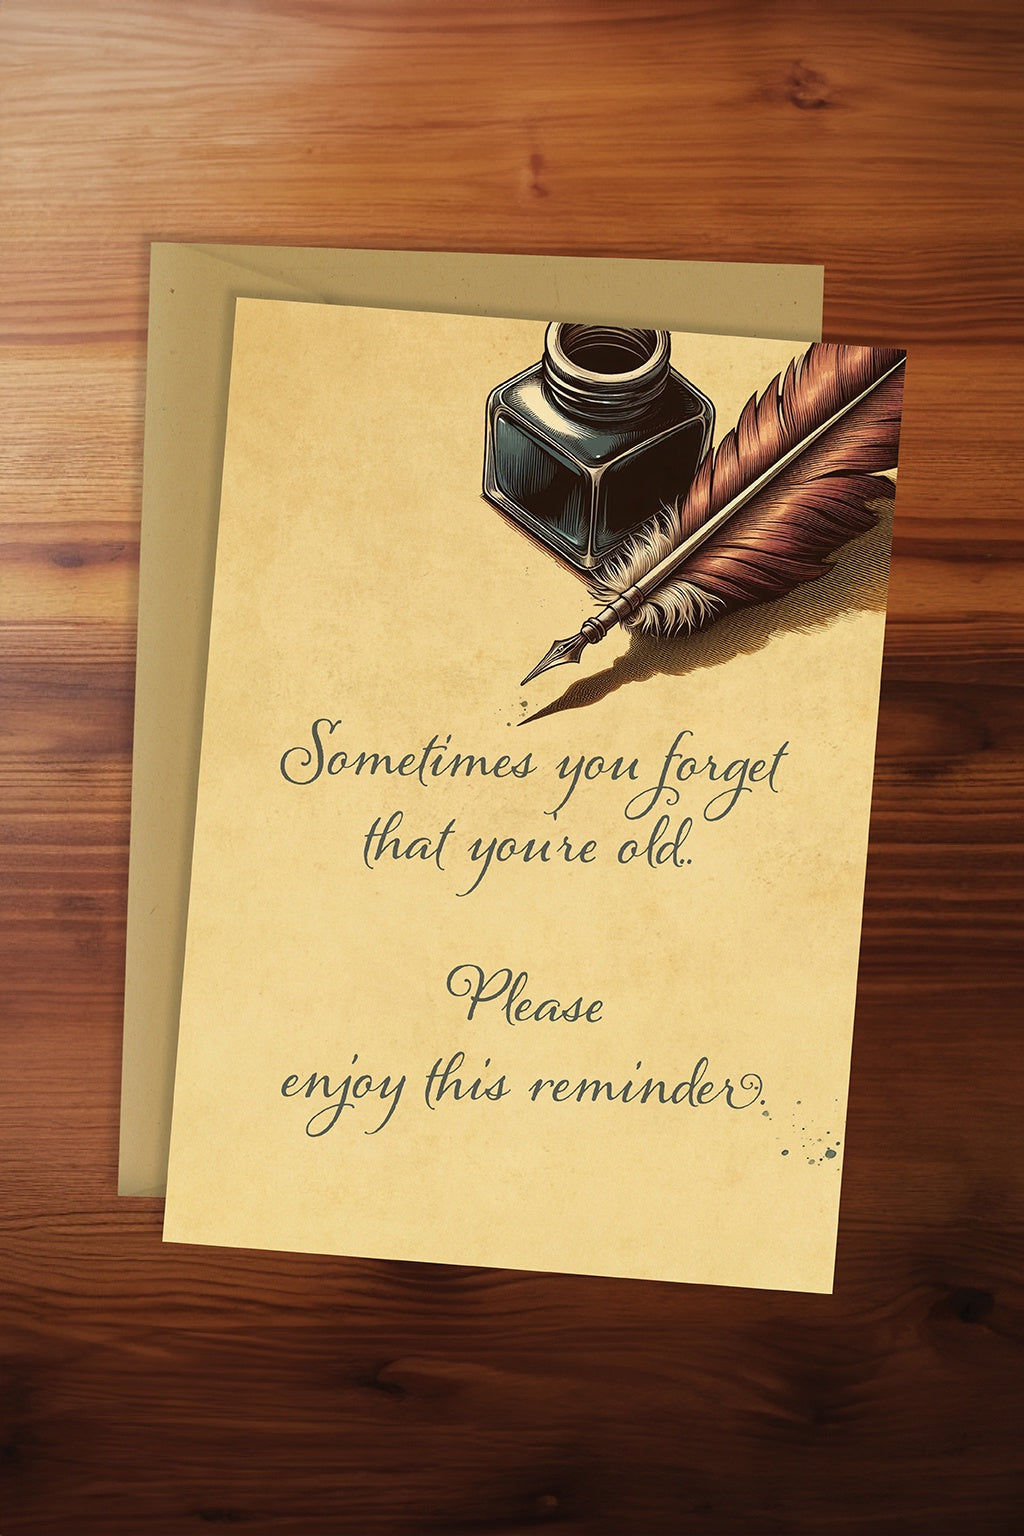 Sometimes you forget
that you're old..
Please
enjoy this reminder.